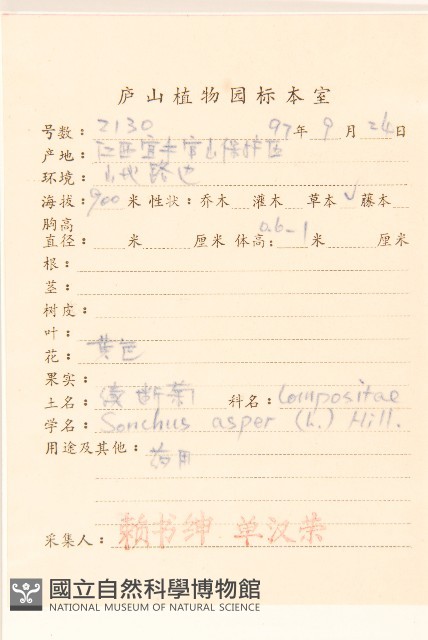 庐山植物园标本室
号数：2130 97年9月24日
产地：江西宜丰官山保护区
环境：山地路边
海拔：900米 性状：乔木 灌木 草本✓ 藤本
胸高
直径： 米 厘米 体高：0.6-1米 厘米
根：
茎：
树皮：
叶：
花：黄色
果实：
土名：断菊 科名：Compositae
学名：Sonchus asper (L.) Hill.
用途及其他：药用
采集人：赖书绅 单汉荣
國立自然科學博物館
NATIONAL MUSEUM OF NATURAL SCIENCE